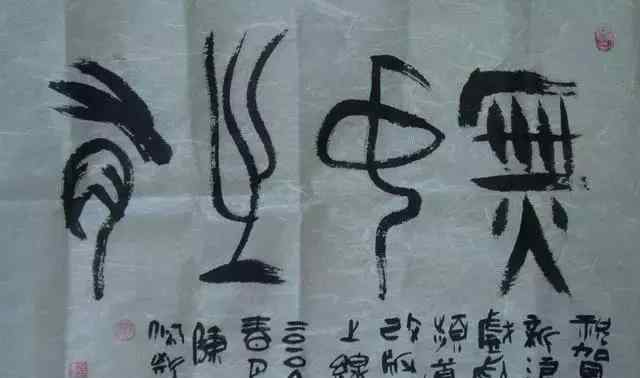 無中生有
祝賀
新浪
戲劇
頻道
改版
上線
二〇〇
春月
陳
佩斯